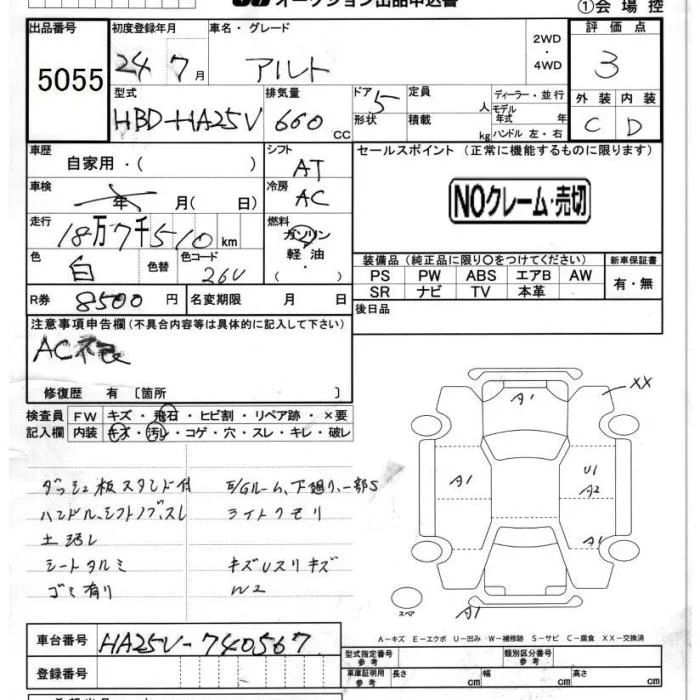 オークション出品申込書 ①会場控
出品番号 初度登録年月 車名・グレード 2WD ・ 4WD 評価点
5055 24 7月 アルト 3
型式 排気量 ドア 5 定員 人 ディーラー・並行 外装 内装
HBD-HA25V 660 cc 形状 積載 kg モデル年式 年 ハンドル 左・右 C D
車歴 自家用・( ) シフト AT セールスポイント (正常に機能するものに限ります)
車検 年 月( 日) 冷房 AC NOクレーム・売切
走行 18万7千510km 燃料 ガソリン
色 白 色替 色コード 26U 軽油・ ( 装備品 (純正品に限り○をつけてください) 新車保証書
PS PW ABS エアB AW 有・無
SR ナビ TV 本革
R券 8500円 名変期限 月 日 後日品
注意事項申告欄(不具合内容等は具体的に記入して下さい)
AC不良
修復歴 有 [箇所 ]
検査員 FW キズ・飛石・ヒビ割・リペア跡・×要
記入欄 内装 キズ・汚レ・コゲ・穴・スレ・キレ・破レ
XX
A1
A1 U1 A2
A1
ダッシュ板スタンド付 E/Gルーム、下廻り、一部S
ハンドル、シフトノブ、スレ ライトクモリ
土汚レ
シートタルミ キズUスリキズ
ゴミ有り W2
スペア A1
A-キズ E-エクボ U-凹み W-補修跡 S-サビ C-腐食 XX-交換済
車台番号 HA25V-740567
型式指定番号 参考 類別区分番号 参考
登録番号 車庫証明用 参考 長さ cm 幅 cm 高さ cm